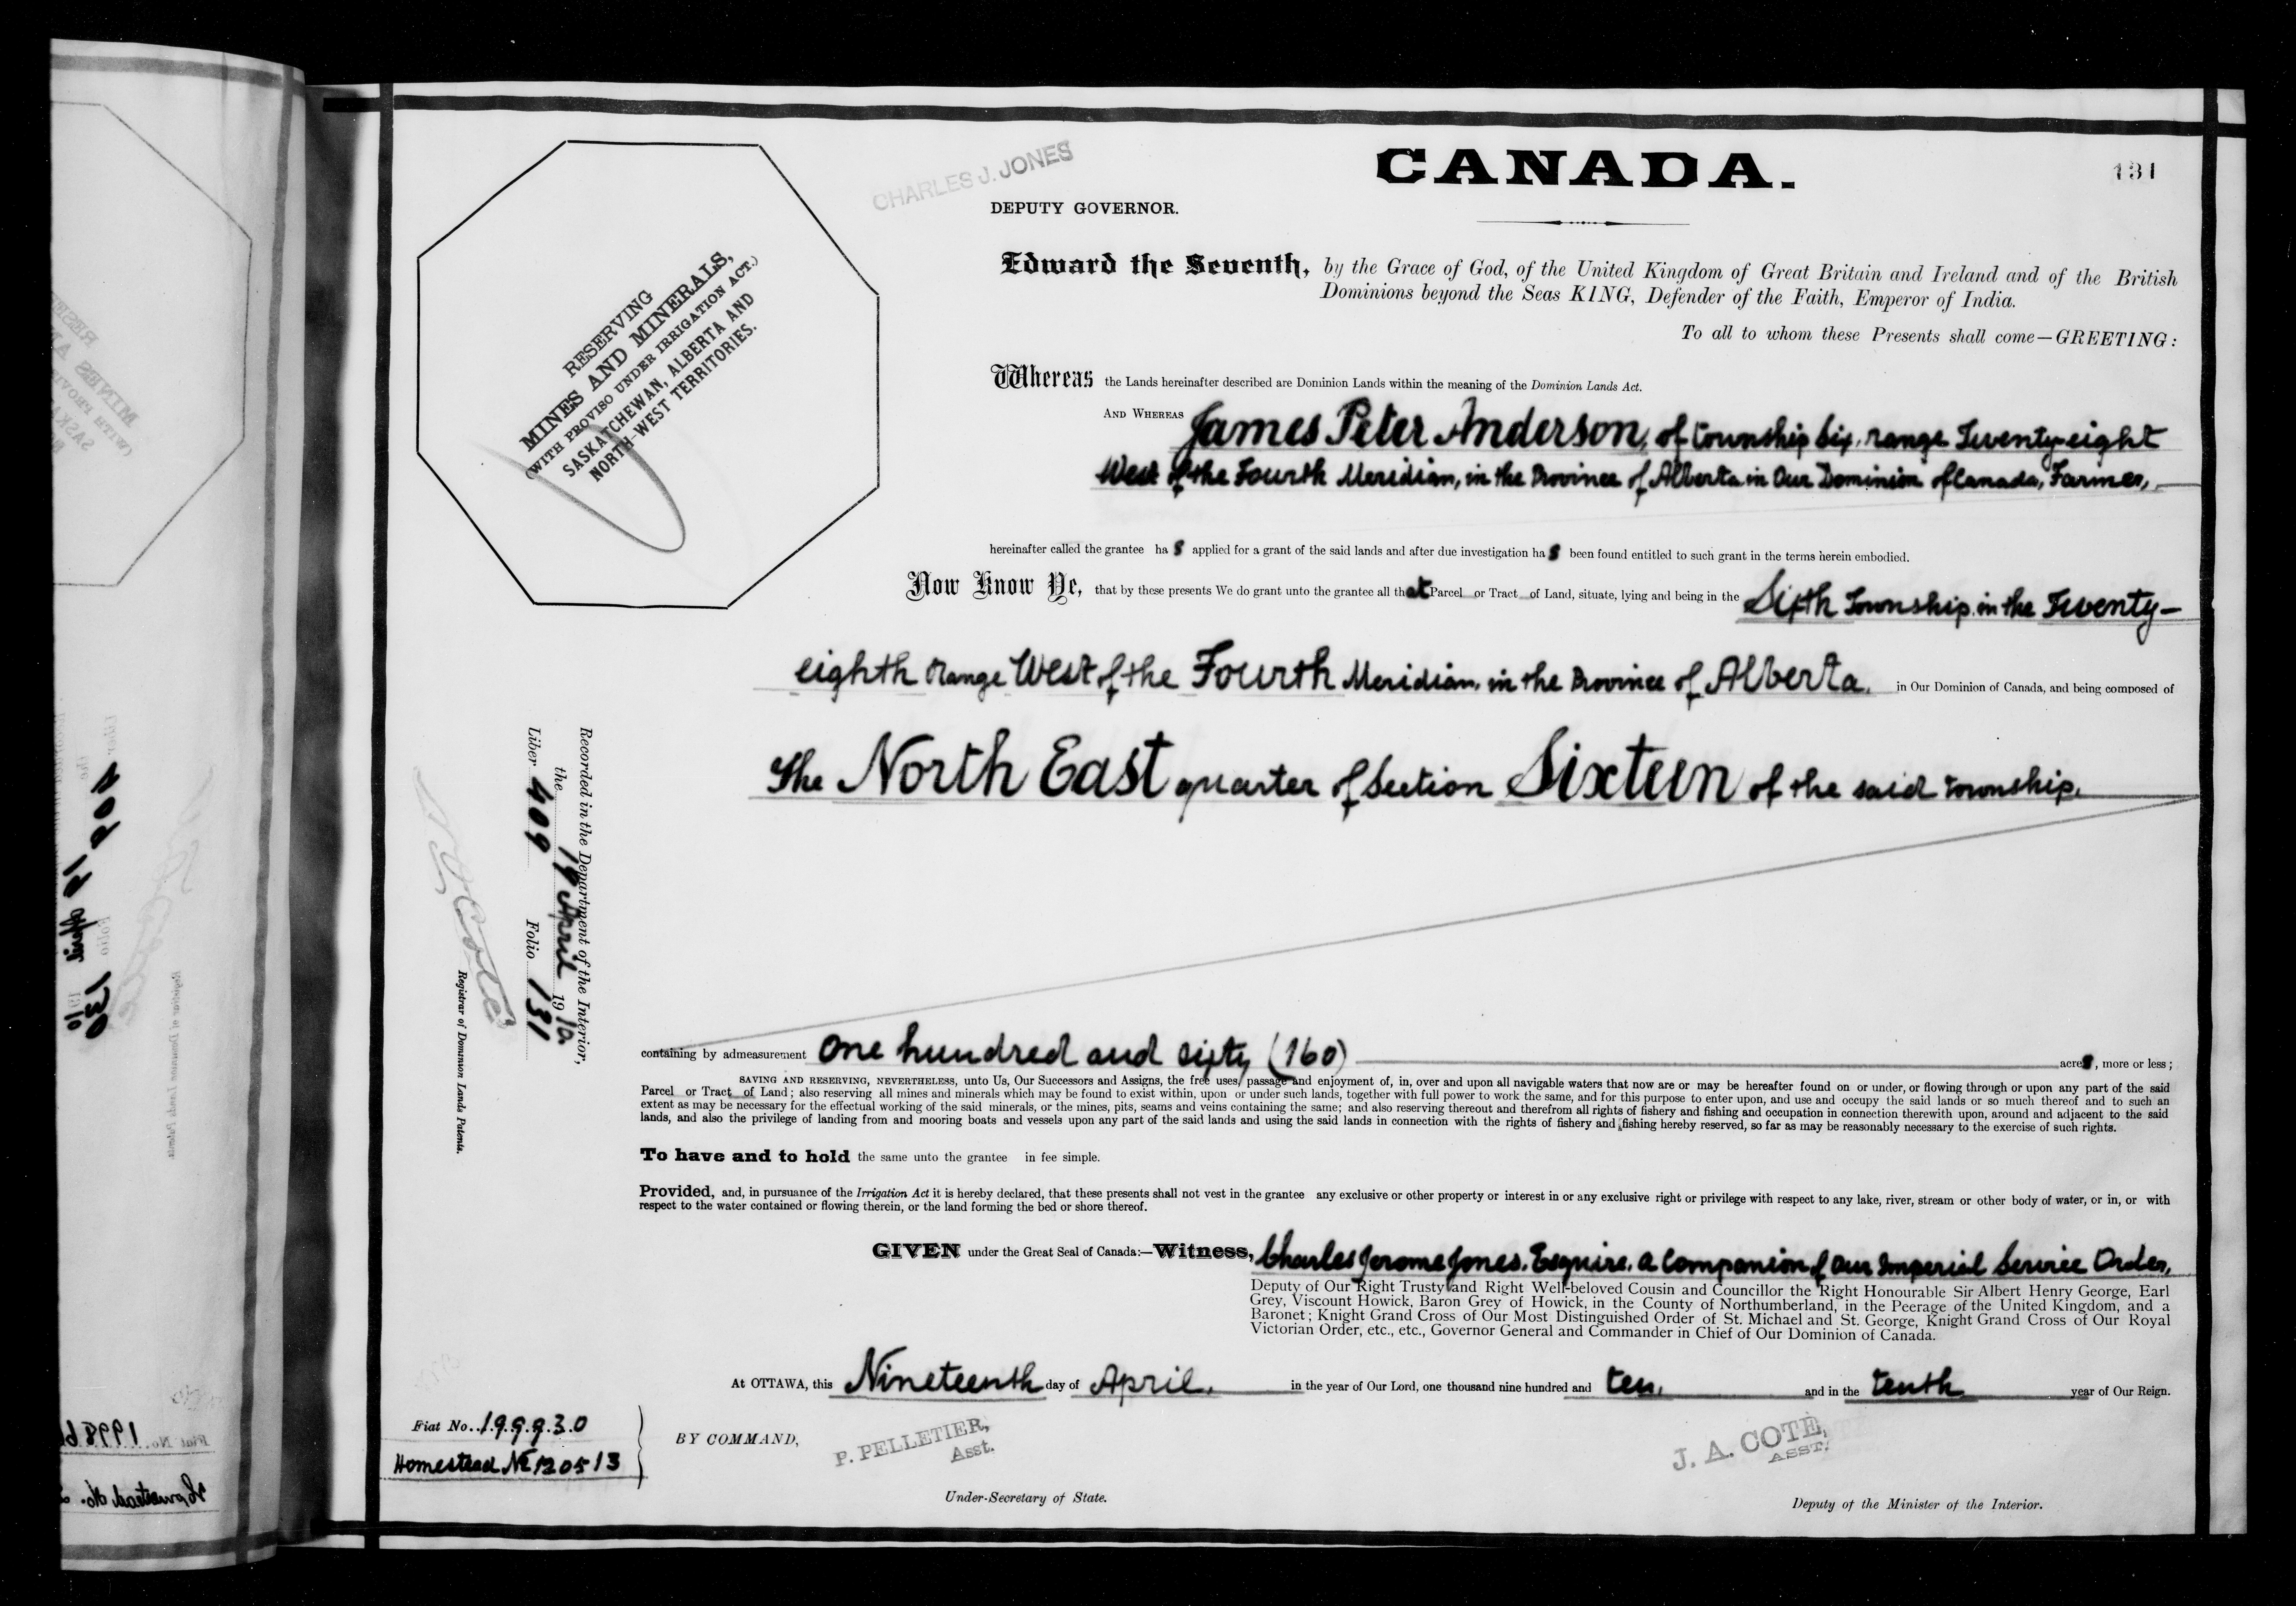 CHARLES J. JONES
CANADA.
131
DEPUTY GOVERNOR.
RESERVING
MINES AND MINERALS,
(WITH PROVISO UNDER IRRIGATION ACT.)
SASKATCHEWAN, ALBERTA AND
NORTH-WEST TERRITORIES.
Edward the Seventh, by the Grace of God, of the United Kingdom of Great Britain and Ireland and of the British
Dominions beyond the Seas KING, Defender of the Faith, Emperor of India.
To all to whom these Presents shall come—GREETING:
Whereas the Lands hereinafter described are Dominion Lands within the meaning of the Dominion Lands Act.
AND WHEREAS James Peter Anderson, of township Six, range Twenty-eight
West of the Fourth Meridian, in the Province of Alberta in Our Dominion of Canada, Farmer,
hereinafter called the grantee has applied for a grant of the said lands and after due investigation has been found entitled to such grant in the terms herein embodied.
Now Know Ye, that by these presents We do grant unto the grantee all that Parcel or Tract of Land, situate, lying and being in the Sixth Township, in the Twenty-
eighth range West of the Fourth Meridian, in the Province of Alberta, in Our Dominion of Canada, and being composed of
The North East quarter of Section Sixteen of the said township.
Recorded in the Department of the Interior,
the 19 April 1910
Liber 409 Folio 131
Registrar of Dominion Lands Patents.
containing by admeasurement One hundred and sixty (160) acres, more or less;
SAVING AND RESERVING, NEVERTHELESS, unto Us, Our Successors and Assigns, the free uses, passage and enjoyment of, in, over and upon all navigable waters that now are or may be hereafter found on or under, or flowing through or upon any part of the said
Parcel or Tract of Land; also reserving all mines and minerals which may be found to exist within, upon or under such lands, together with full power to work the same, and for this purpose to enter upon, and use and occupy the said lands or so much thereof and to such an
extent as may be necessary for the effectual working of the said minerals, or the mines, pits, seams and veins containing the same; and also reserving thereout and therefrom all rights of fishery and fishing and occupation in connection therewith upon, around and adjacent to the said
lands, and also the privilege of landing from and mooring boats and vessels upon any part of the said lands and using the said lands in connection with the rights of fishery and fishing hereby reserved, so far as may be reasonably necessary to the exercise of such rights.
To have and to hold the same unto the grantee in fee simple.
Provided, and, in pursuance of the Irrigation Act it is hereby declared, that these presents shall not vest in the grantee any exclusive or other property or interest in or any exclusive right or privilege with respect to any lake, river, stream or other body of water, or in, or with
respect to the water contained or flowing therein, or the land forming the bed or shore thereof.
GIVEN under the Great Seal of Canada:—Witness, Charles Jerome Jones, Esquire, a Companion of Our Imperial Service Order,
Deputy of Our Right Trusty and Right Well-beloved Cousin and Councillor the Right Honourable Sir Albert Henry George, Earl
Grey, Viscount Howick, Baron Grey of Howick, in the County of Northumberland, in the Peerage of the United Kingdom, and a
Baronet; Knight Grand Cross of Our Most Distinguished Order of St. Michael and St. George, Knight Grand Cross of Our Royal
Victorian Order, etc., etc., Governor General and Commander in Chief of Our Dominion of Canada.
At OTTAWA, this Nineteenth day of April, in the year of Our Lord, one thousand nine hundred and ten, and in the tenth year of Our Reign.
Fiat No. 199930
Homestead No 120513
BY COMMAND,
P. PELLETIER,
Asst.
Under-Secretary of State.
J. A. COTE,
ASST.
Deputy of the Minister of the Interior.